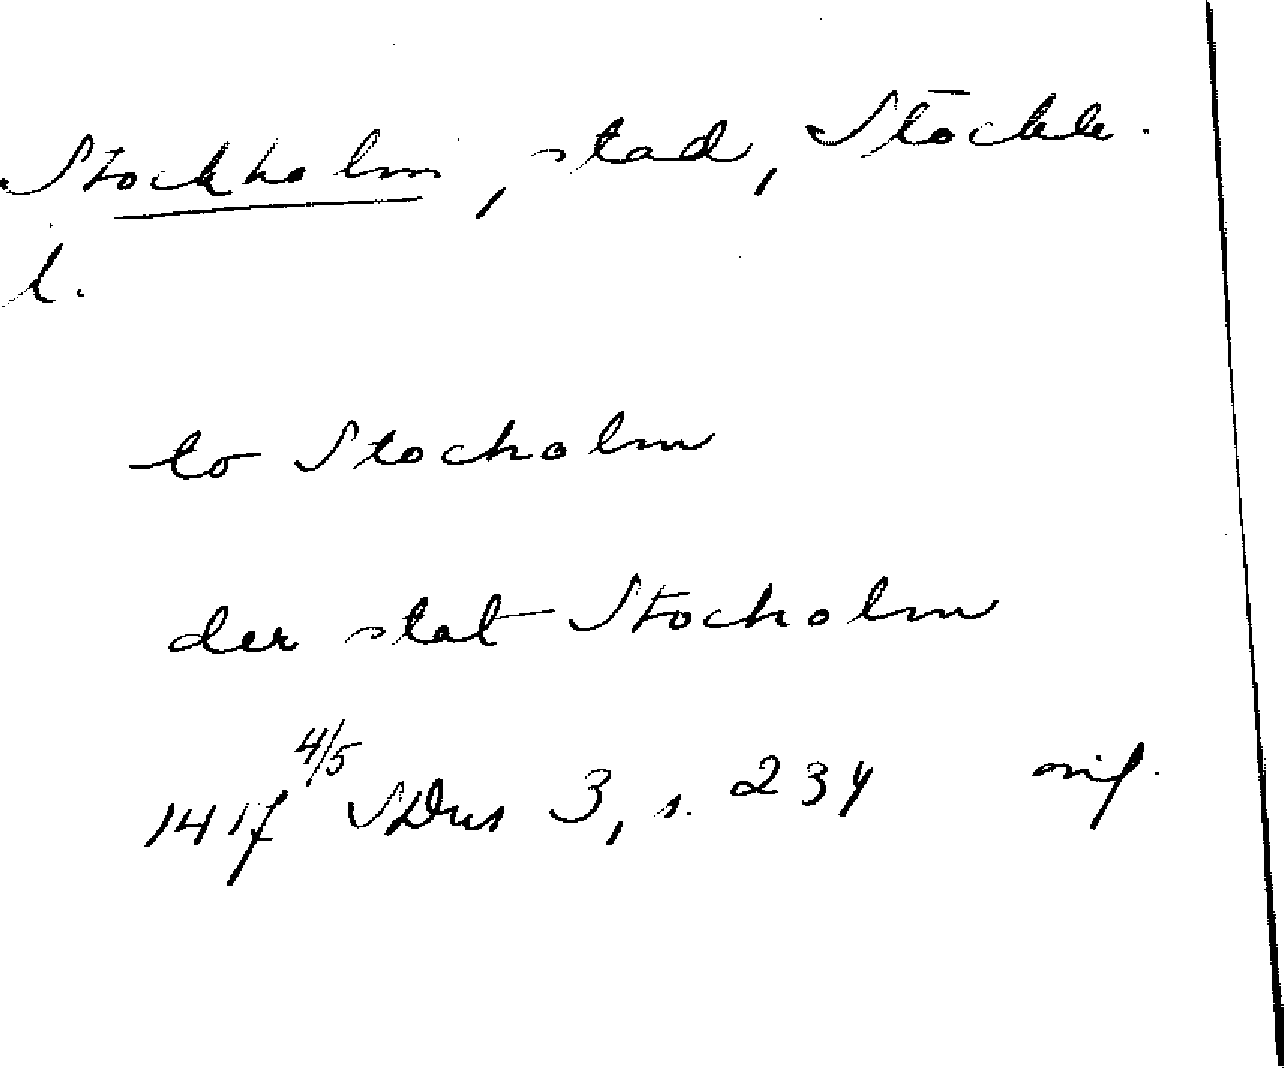 Stockholm, stad, Stockh.
l.
to Stocholm
der stat Stocholm
1417 4/5 SDns 3, s. 234